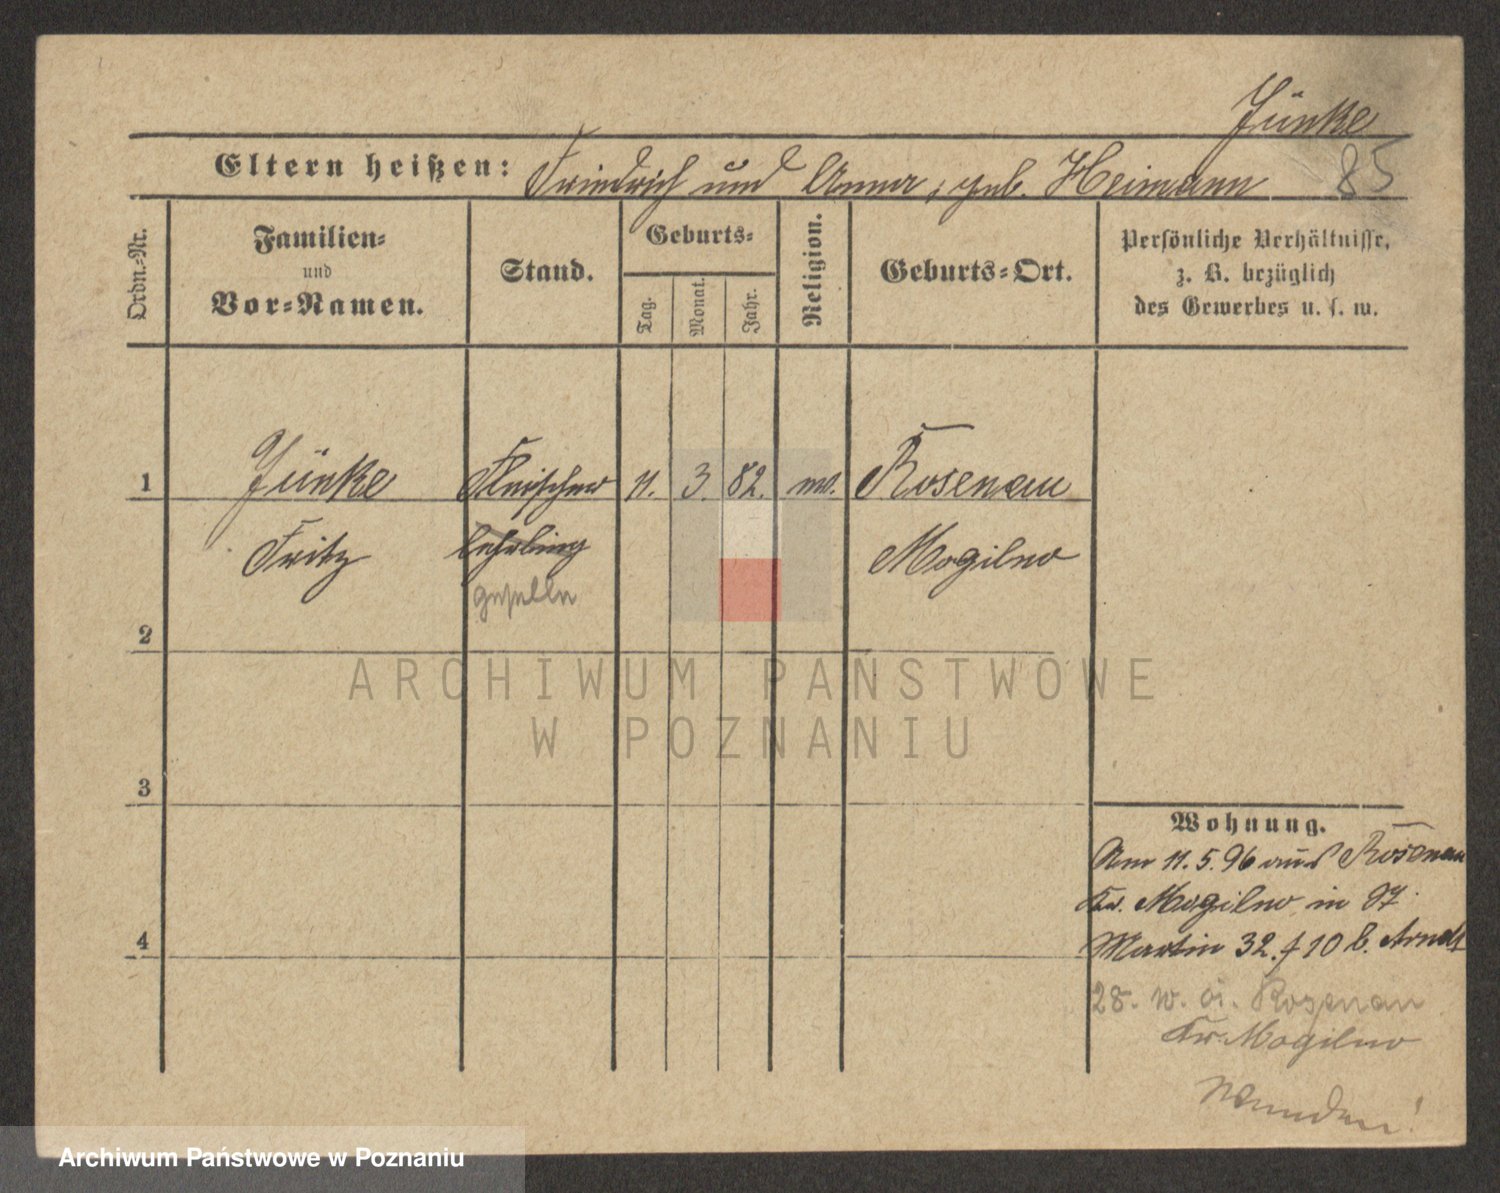 Jünke
85
Eltern heißen: Friedrich und Anna, geb. Heimann
Ordn.-Nr.
Familien-
und
Vor-Namen.
Stand.
Geburts-
Tag.
Monat.
Jahr.
Religion.
Geburts-Ort.
Persönliche Verhältnisse,
z. B. bezüglich
des Gewerbes u. s. w.
1 Jünke Fleischer 11. 3. 82. ev. Rosenau
Fritz lehrling Mogilno
geselle
2
3
4
Wohnung.
Am 11.5.96 aus Rosenau
Kr. Mogilno in 97
Martin 32. f 10 b. Arndt
28. Rosenau
Kr. Mogilno
Wenden!
ARCHIWUM PAŃSTWOWE
W POZNANIU
Archiwum Państwowe w Poznaniu